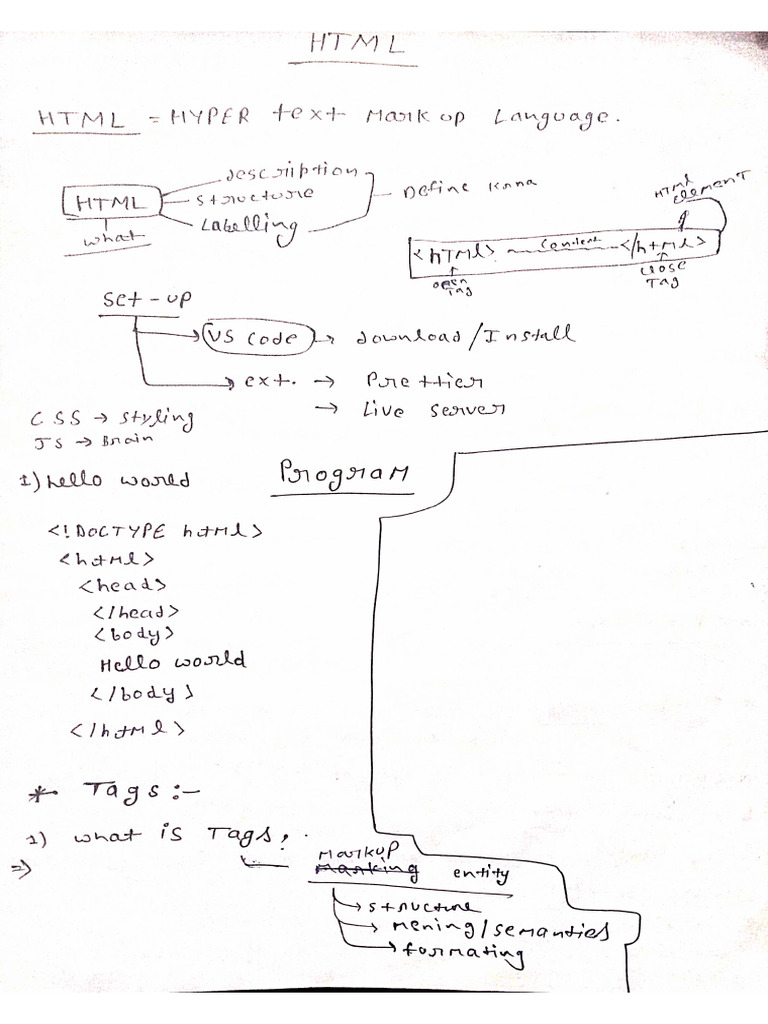 HTML
HTML = HYPER text Markup Language.
HTML
what
description
structure
Labelling
Define krna
HTML ELEMENT
<hTMl> Content </html>
open Tag
close Tag
set-up
VS Code → download/Install
ext. → Prettier
→ Live server
CSS → styling
JS → Brain
Program
1) hello world
<!DOCTYPE html>
<html>
<head>
</head>
<body>
Hello world
</body>
</html>
* Tags :-
1) what is Tags?
⇒
Markup
Marking entity
structure
mening/semanties
formating